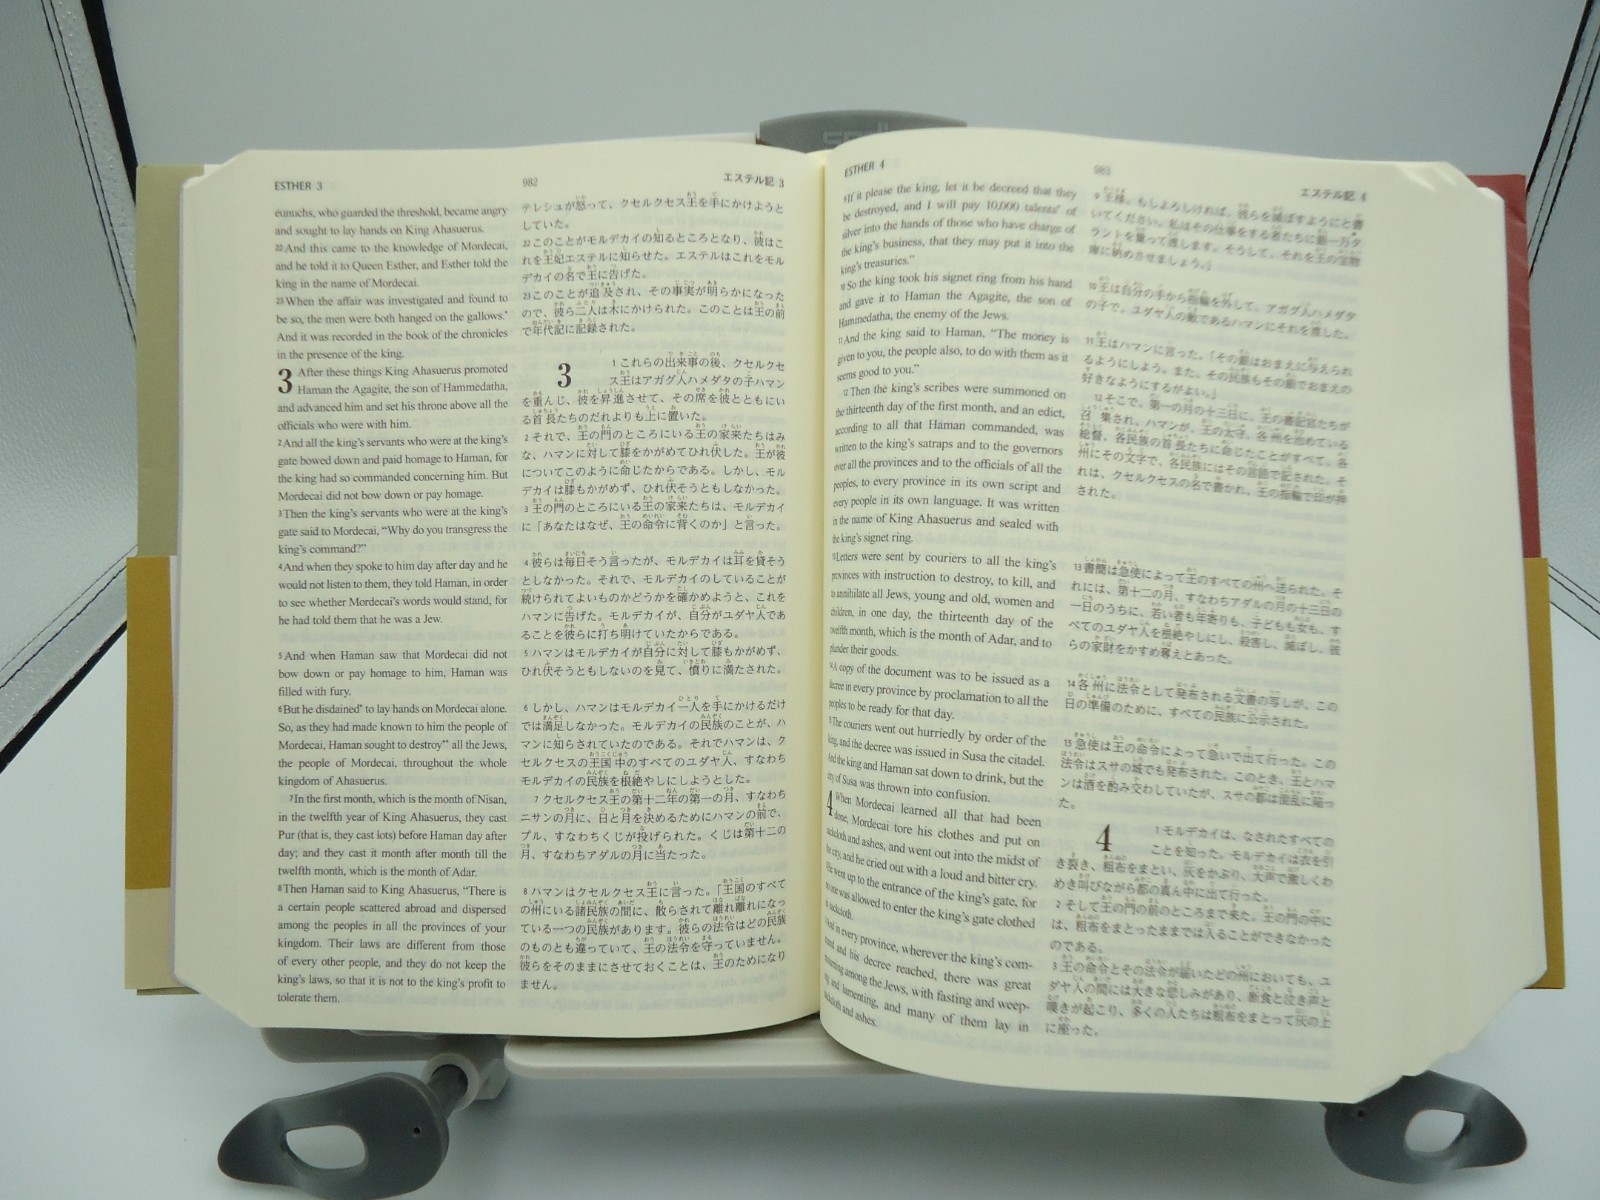 ESTHER 3
982
エステル記 3
eunuchs, who guarded the threshold, became angry
and sought to lay hands on King Ahasuerus.
22And this came to the knowledge of Mordecai,
and he told it to Queen Esther, and Esther told the
king in the name of Mordecai.
23When the affair was investigated and found to
be so, the men were both hanged on the gallows.*
And it was recorded in the book of the chronicles
in the presence of the king.
3 After these things King Ahasuerus promoted
Haman the Agagite, the son of Hammedatha,
and advanced him and set his throne above all the
officials who were with him.
2And all the king's servants who were at the king's
gate bowed down and paid homage to Haman, for
the king had so commanded concerning him. But
Mordecai did not bow down or pay homage.
3Then the king's servants who were at the king's
gate said to Mordecai, “Why do you transgress the
king's command?”
4And when they spoke to him day after day and he
would not listen to them, they told Haman, in order
to see whether Mordecai's words would stand, for
he had told them that he was a Jew.
5And when Haman saw that Mordecai did not
bow down or pay homage to him, Haman was
filled with fury.
6But he disdained* to lay hands on Mordecai alone.
So, as they had made known to him the people of
Mordecai, Haman sought to destroy** all the Jews,
the people of Mordecai, throughout the whole
kingdom of Ahasuerus.
7In the first month, which is the month of Nisan,
in the twelfth year of King Ahasuerus, they cast
Pur (that is, they cast lots) before Haman day after
day; and they cast it month after month till the
twelfth month, which is the month of Adar.
8Then Haman said to King Ahasuerus, “There is
a certain people scattered abroad and dispersed
among the peoples in all the provinces of your
kingdom. Their laws are different from those
of every other people, and they do not keep the
king's laws, so that it is not to the king's profit to
tolerate them.
テレシュが怒って、クセルクセス王を手にかけようと
していた。
22 このことがモルデカイの知るところとなり、彼はこ
れを王妃エステルに知らせた。エステルはこれをモル
デカイの名で王に告げた。
23 このことが追及され、その事実が明らかになった
ので、彼ら二人は木にかけられた。このことは王の前
で年代記に記録された。
3 1 これらの出来事の後、クセルクセ
ス王はアガグ人ハメダタの子ハマン
を重んじ、彼を昇進させて、その席を彼とともにい
る首長たちのだれよりも上に置いた。
2 それで、王の門のところにいる王の家来たちはみ
な、ハマンに対して膝をかがめてひれ伏した。王が彼
についてこのように命じたからである。しかし、モル
デカイは膝もかがめず、ひれ伏そうともしなかった。
3 王の門のところにいる王の家来たちは、モルデカイ
に「あなたはなぜ、王の命令に背くのか」と言った。
4 彼らは毎日そう言ったが、モルデカイは耳を貸そう
としなかった。それで、モルデカイのしていることが
続けられてよいものかどうかを確かめようと、これを
ハマンに告げた。モルデカイが、自分がユダヤ人であ
ることを彼らに打ち明けていたからである。
5 ハマンはモルデカイが自分に対して膝もかがめず、
ひれ伏そうともしないのを見て、憤りに満たされた。
6 しかし、ハマンはモルデカイ一人を手にかけるだけ
では満足しなかった。モルデカイの民族のことが、ハ
マンに知らされていたのである。それでハマンは、ク
セルクセスの王国中のすべてのユダヤ人、すなわち
モルデカイの民族を根絶やしにしようとした。
7 クセルクセス王の第十二年の第一の月、すなわち
ニサンの月に、日と月を決めるためにハマンの前で、
プル、すなわちくじが投げられた。くじは第十二の
月、すなわちアダルの月に当たった。
8 ハマンはクセルクセス王に言った。「王国のすべて
の州にいる諸民族の間に、散らされて離れ離れになっ
ている一つの民族があります。彼らの法令はどの民族
のものとも違っていて、王の法令を守っていません。
彼らをそのままにさせておくことは、王のためになり
ません。
ESTHER 4
983
エステル記 4
9If it please the king, let it be decreed that they
be destroyed, and I will pay 10,000 talents* of
silver into the hands of those who have charge of
the king's business, that they may put it into the
king's treasuries.”
10So the king took his signet ring from his hand
and gave it to Haman the Agagite, the son of
Hammedatha, the enemy of the Jews.
11And the king said to Haman, “The money is
given to you, the people also, to do with them as it
seems good to you.”
12Then the king's scribes were summoned on
the thirteenth day of the first month, and an edict,
according to all that Haman commanded, was
written to the king's satraps and to the governors
over all the provinces and to the officials of all the
peoples, to every province in its own script and
every people in its own language. It was written
in the name of King Ahasuerus and sealed with
the king's signet ring.
13Letters were sent by couriers to all the king's
provinces with instruction to destroy, to kill, and
to annihilate all Jews, young and old, women and
children, in one day, the thirteenth day of the
twelfth month, which is the month of Adar, and to
plunder their goods.
14A copy of the document was to be issued as a
decree in every province by proclamation to all the
peoples to be ready for that day.
15The couriers went out hurriedly by order of the
king, and the decree was issued in Susa the citadel.
And the king and Haman sat down to drink, but the
city of Susa was thrown into confusion.
4 When Mordecai learned all that had been
done, Mordecai tore his clothes and put on
sackcloth and ashes, and went out into the midst of
the city, and he cried out with a loud and bitter cry.
He went up to the entrance of the king's gate, for
no one was allowed to enter the king's gate clothed
in sackcloth.
And in every province, wherever the king's com-
mand and his decree reached, there was great
mourning among the Jews, with fasting and weep-
ing and lamenting, and many of them lay in
sackcloth and ashes.
9 王様。もしよろしければ、彼らを滅ぼすようにと書
いてください。私はその仕事をする者たちに銀一万タ
ラントを量って渡します。そうして、それを王の宝物
庫に納めさせましょう。」
10 王は自分の手から指輪を外して、アガグ人ハメダタ
の子で、ユダヤ人の敵であるハマンにそれを渡した。
11 王はハマンに言った。「その銀はおまえに与えられ
るようにしよう。また、その民族もその銀でおまえの
好きなようにするがよい。」
12 そこで、第一の月の十三日に、王の書記官たちが
召集され、ハマンが、王の太守、各州を治めている
総督、各民族の首長たちに命じたことがすべて、各
州にその文字で、各民族にはその言語で記された。そ
れは、クセルクセスの名で書かれ、王の指輪で印が押
された。
13 書簡は急使によって王のすべての州へ送られた。そ
れには、第十二の月、すなわちアダルの月の十三日の
一日のうちに、若い者も年寄りも、子どもも女も、す
べてのユダヤ人を根絶やしにし、殺害し、滅ぼし、彼
らの家財をかすめ奪えとあった。
14 各州に法令として発布される文書の写しが、この
日の準備のために、すべての民族に公示された。
15 急使は王の命令によって急いで出て行った。この
法令はスサの城でも発布された。このとき、王とハマ
ンは酒を酌み交わしていたが、スサの都は混乱に陥っ
た。
4 1 モルデカイは、なされたすべての
ことを知った。モルデカイは衣を引
き裂き、粗布をまとい、灰をかぶり、大声で激しくわ
めき叫びながら都の真ん中に出て行った。
2 そして王の門の前のところまで来た。王の門の中に
は、粗布をまとったままでは入ることができなかった
のである。
3 王の命令とその法令が届いたどの州においても、ユ
ダヤ人の間には大きな悲しみがあり、断食と泣き声と
嘆きが起こり、多くの人たちは粗布をまとって灰の上
に座った。